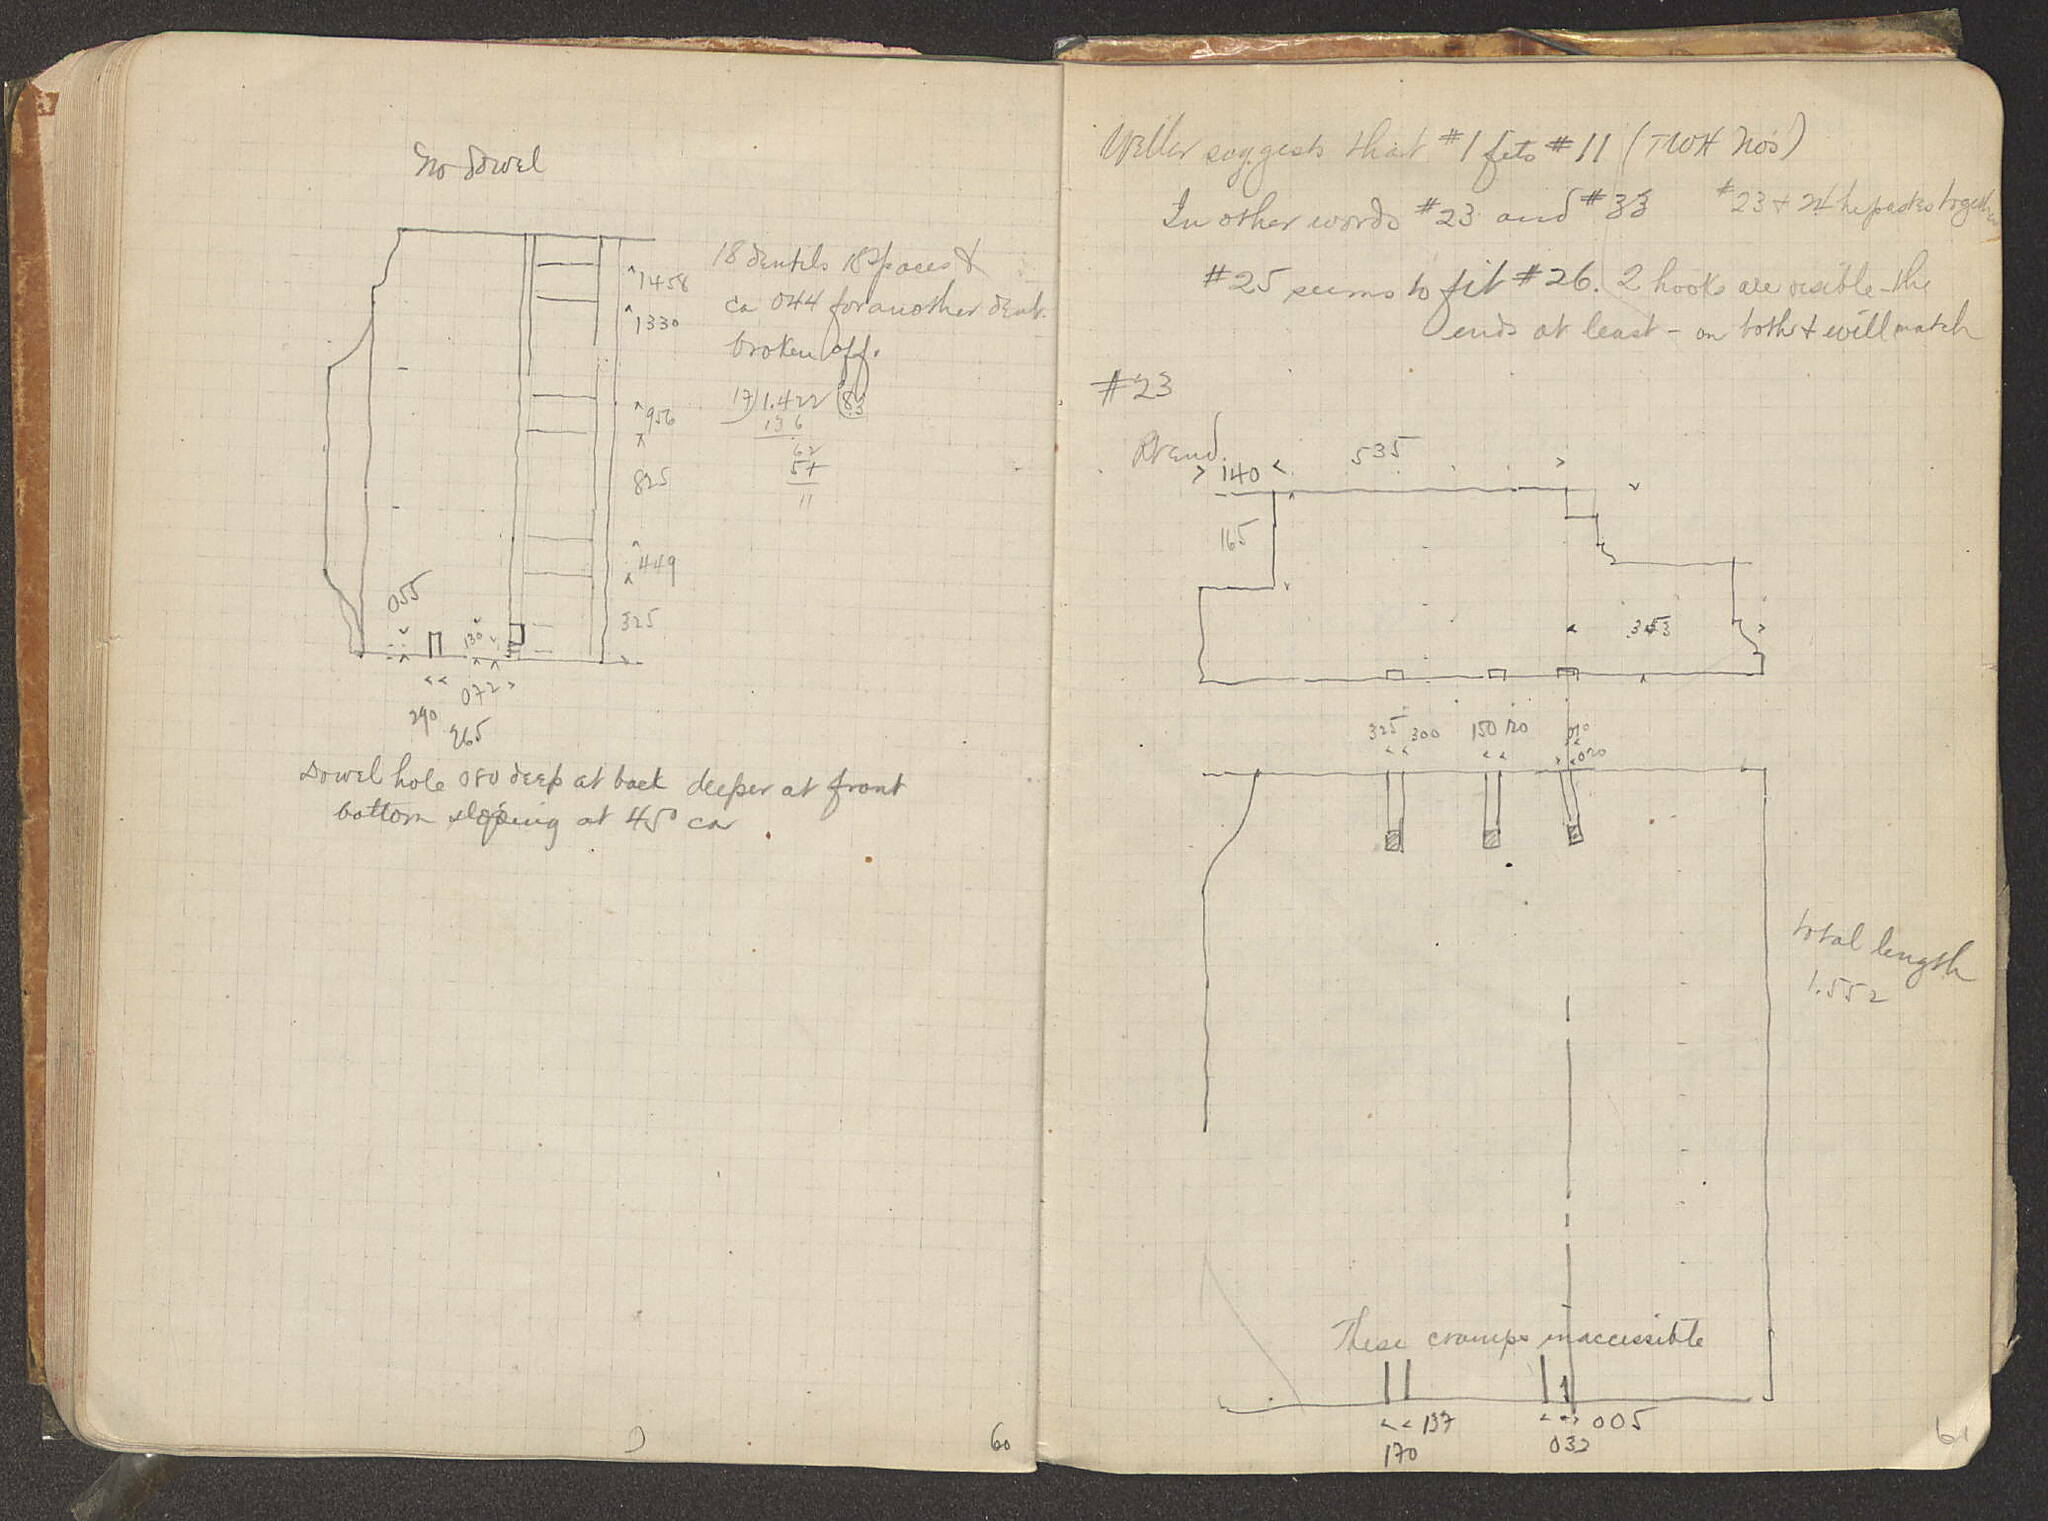 No Dowel
18 dentils 18 spaces &
ca 044 for another dent.
broken off.
1458
1330
17) 1.422 (83
136
62
51
11
956
825
449
325
055
130
072
290
265
Dowel hole 080 deep at back deeper at front
bottom sloping at 45° ca
60
Weller suggests that #1 fits #11 (TWH Nos)
In other words #23 and #33
#23 + 24 he packs together
#25 seems to fit #26. 2 hooks are visible - the
ends at least - on both & will match
#23
Rt End.
535
140
165
353
325 300 150 120 010
020
total length
1.552
These cramps inaccessible
137 005
170 032
61